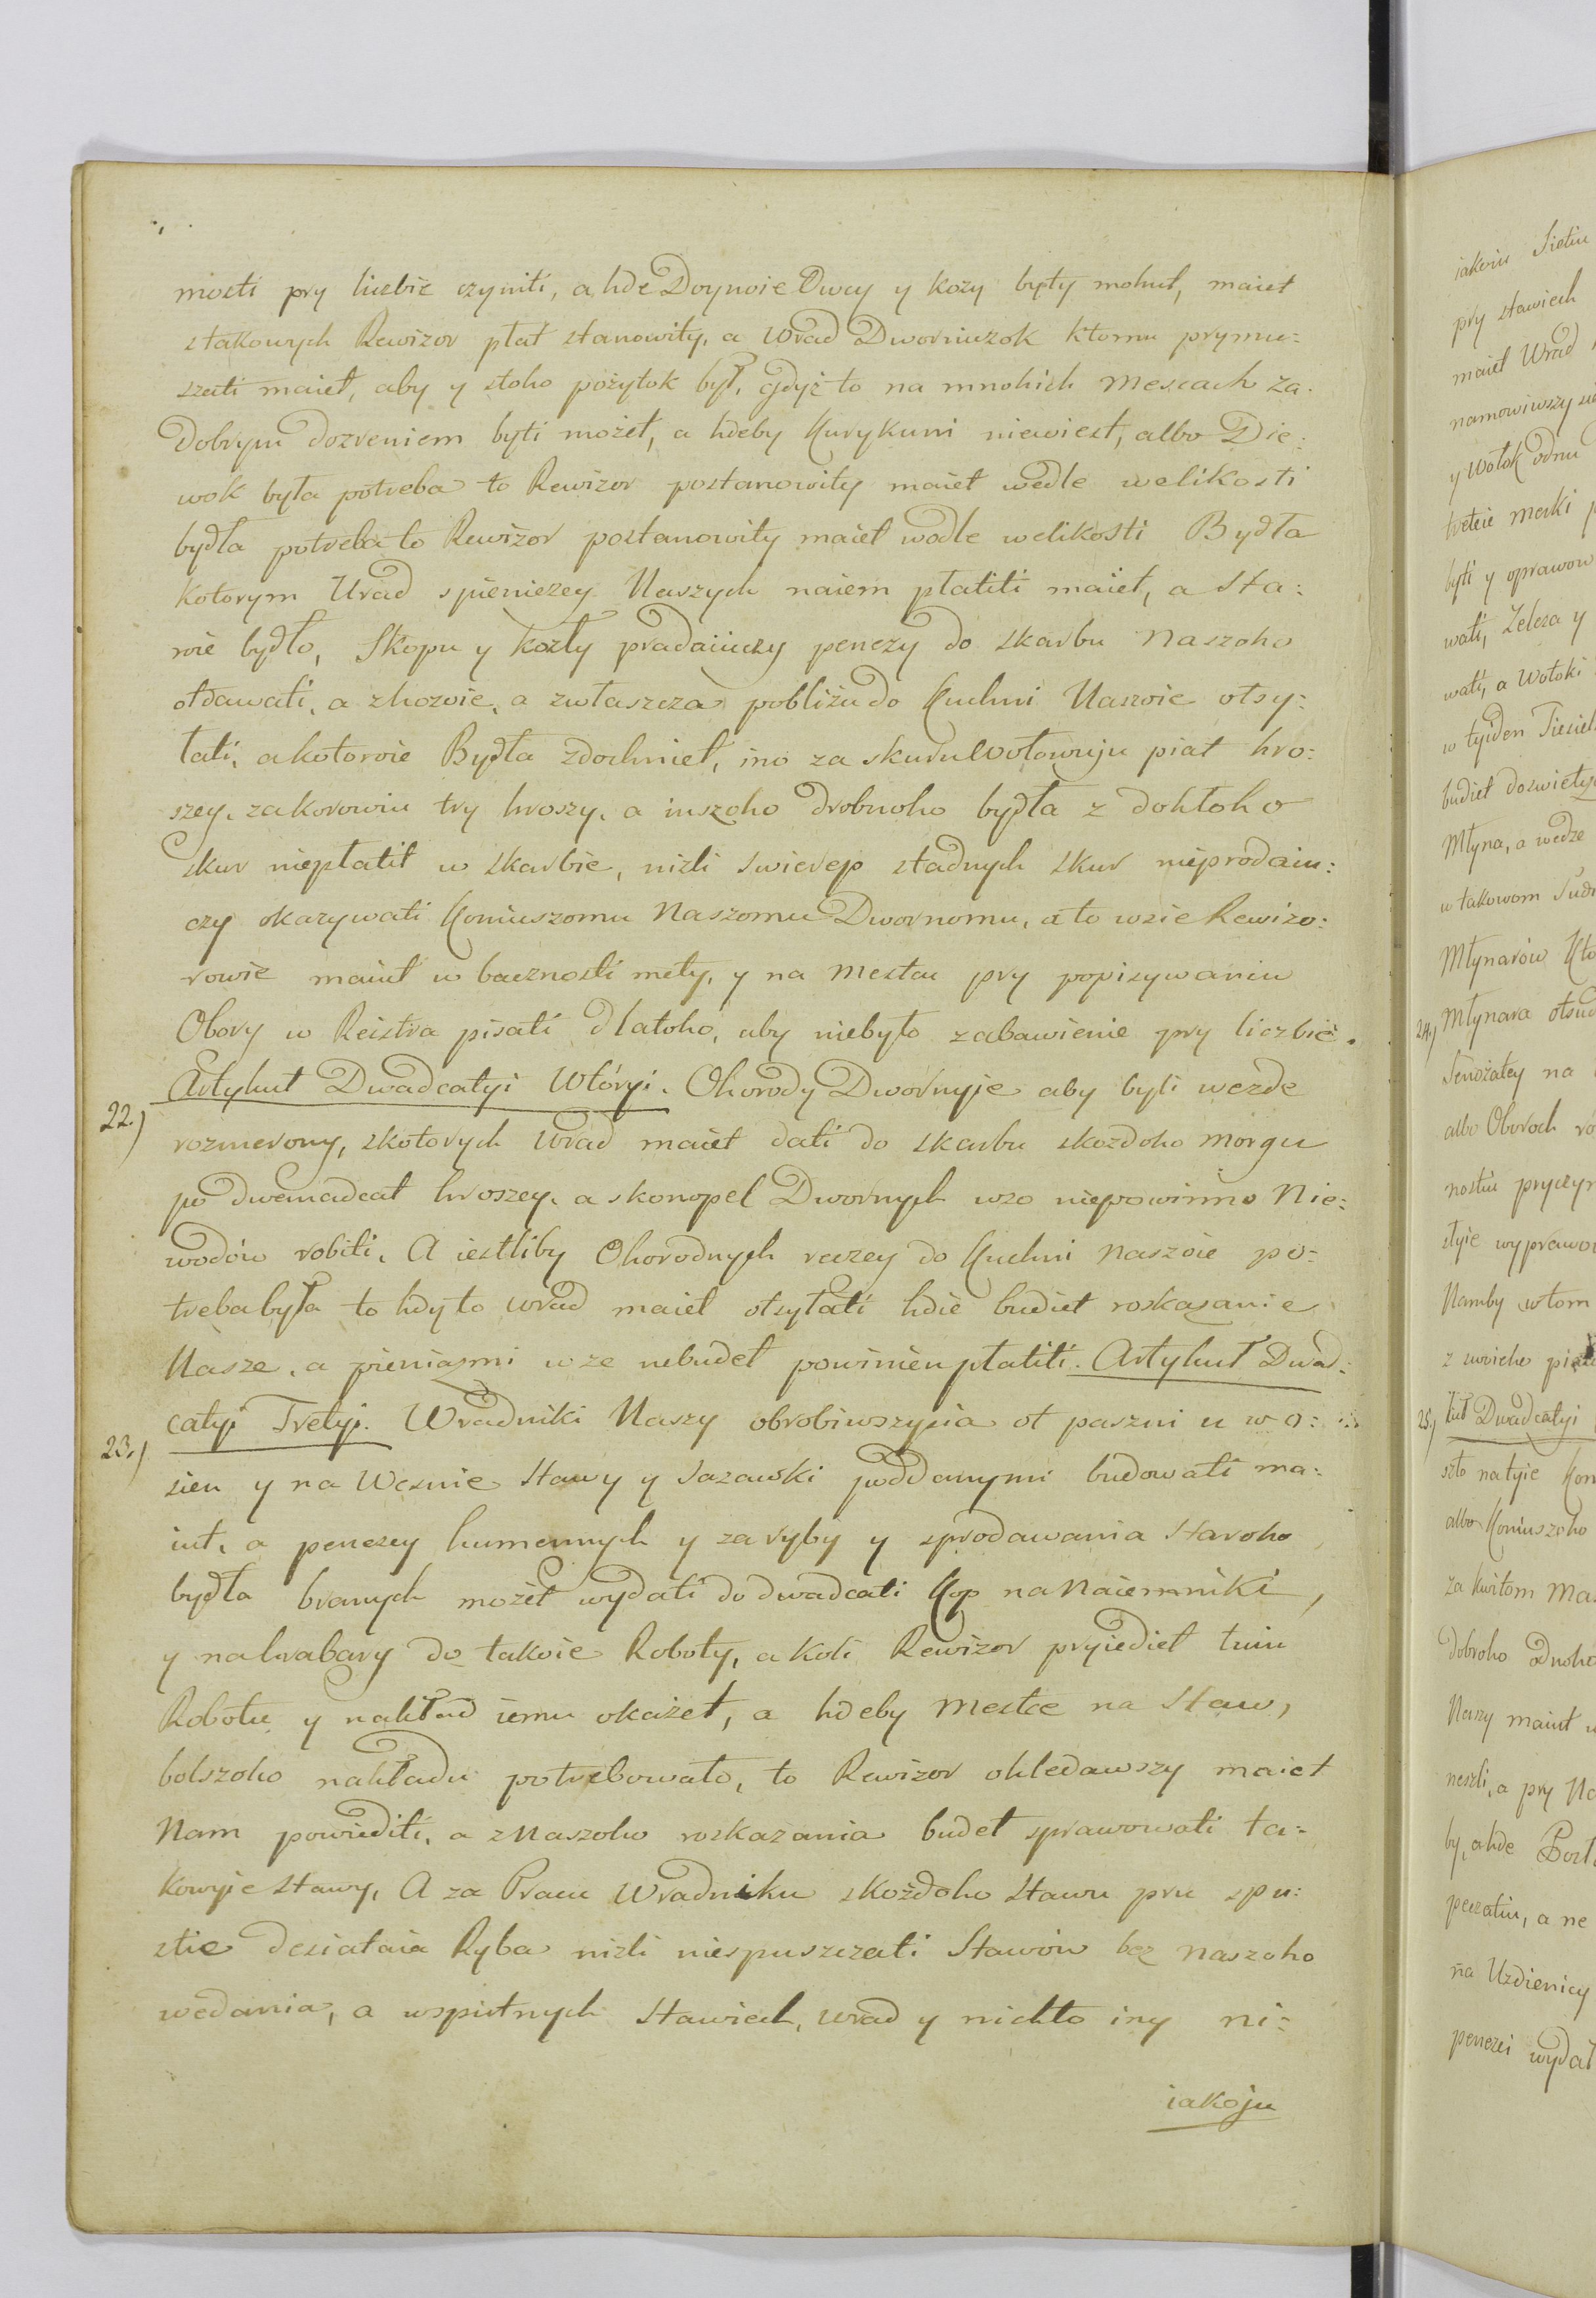 mosti pry liczbie czyniti, a hde Doynoie Owcy y kozy byty mohut, maiet
stakowych Rewizor płat stanowity, a Wrad Dworniczok ktomu prymu=
szati maiet, aby y stoho pożytok był, gdyż to na mnohich mescach za
Dobrym dozreniem byti możet, a hdeby Kurykuni niewiest, albo Die=
wok była potreba to Rewizor postanowity maiet wedle welikosti
bydła potreba to Rewizor postanowity maiet wodle welikosti Bydła
kotorym Urad spieniezey Naszych naiem płatiti maiet, a Sta=
roie bydło, Skopu y kozły pradaiuczy penezy do skarbu Naszoho
otdawati, a zhozoie, a zwłaszcza pobliżu do Kuchni Naszoie otsy=
łati, a kotoroie Bydła zdochniet, ino za skuru Wołowuju piat hro=
szey, za korowiu try hroszy, a inszoho drobnoho bydła z dohtoho
skur niepłatit w skarbie, nizli swierep stadnych skur nieprodaiu=
czy okazywati Koniuszomu Naszomu Dwornomu, a to wsie Rewizo=
rowie maiut w bacznosti mety, y na mestcu pry popisywaniu
Obory w Reiestra pisati dlatoho, aby niebyło zabawienie pry liczbie.
22.) Artykuł Dwadcatyi Wtóryi. Ohorody Dwornyje aby byli wezde
rozmerony, skotorych Wrad maiet dati do skarbu skozdoho morgu
po dwenadcat hroszey, a skonopel Dwornych wzo niepowinno Nie=
wodów robiti, A iestliby Ohorodnych reczey do Kuchni Naszoie po=
treba była to hdyto wrad maiet otsyłati hdie budiet roskazanie
Nasze, a pieniazmi wze nebudet powinien płatiti. Artykuł Dwad=
23.) catyi Tretyi. Wradniki Naszy obrobiwszysia ot paszni u wo=
sien y na Wesnie Stawy y Sazawki poddanymi budowati ma=
iut, a penezey humennych y za ryby y sprodawania Staroho
bydła branych możet wydati do dwadcati Kop na Naiemniki,
y na hrabary do takoie Roboty, a koli Rewizor pryiediet tuiu
Robotu y nakład iemu okażet, a hdeby Mestce na Staw,
bolszoho nakładu potrebowało, to Rewizor ohledawszy maiet
Nam powiediti, a z Naszoho roskazania budet sprawowati ta=
kowyie stawy, A za Pracu Wradniku skożdoho Stawu pru spu=
stie desiataia Ryba nizli niespuszczati Stawów bez naszoho
wedania, a wspustnych Stawiech, wrad y nichto iny ni=
iakoju
iakoiu Sietiu
pry stawiech
maiet Wrad
namowiwszy
y Wołok odnu
treteie merki
byti y oprawow
wati, Zeleza y
wati, a Wołoki
w tyiden
budiet
Młyna, a wedze
w takowom
Młynarów Kto
24.) Młynara otsud
Senożatey na
albo Oborach
nostiu pryczyn
styie wyprawo
Namby wtom
25.) tuł Dwadcatyi
szto natyie Kon
albo Koniuszoho
za kwitom
dobroho Druho
Naszy maiut
neszli, a pry Na
by, a hde
peczatiu, a ne
na Uzdienicy
penezei wydat